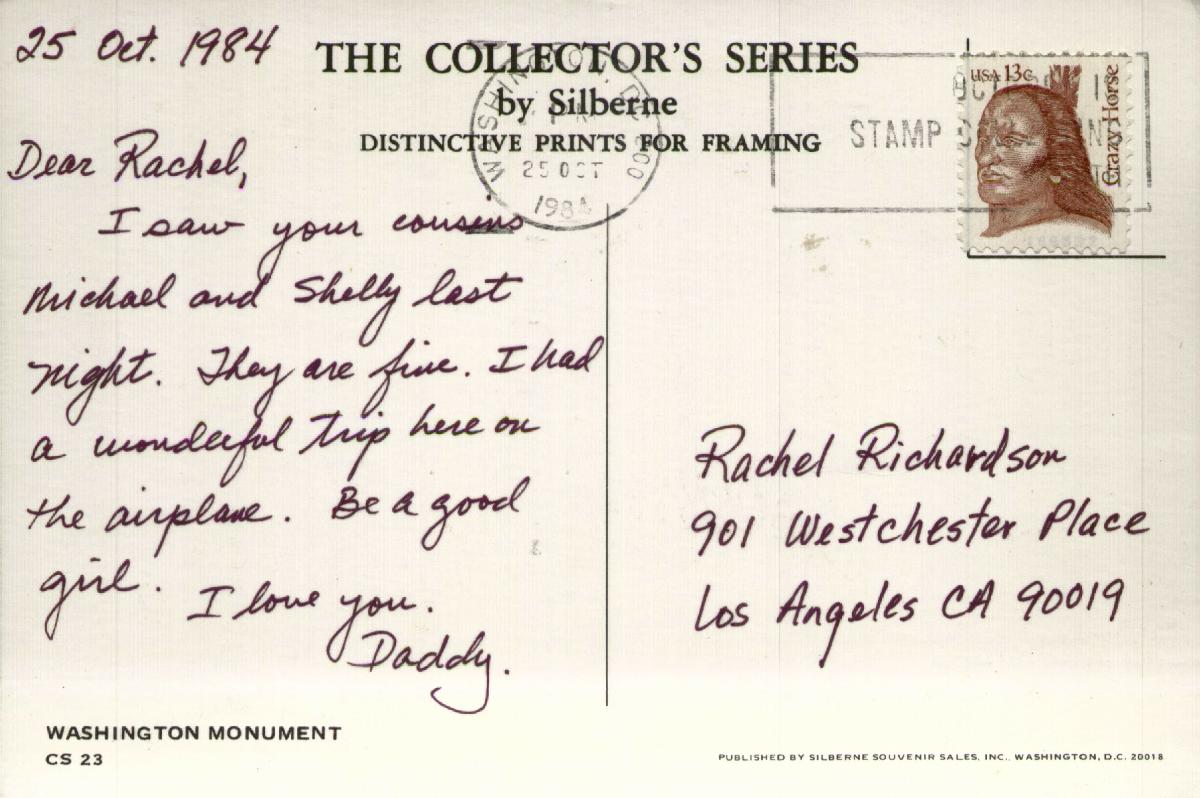 25 Oct. 1984
THE COLLECTOR'S SERIES
by Silberne
DISTINCTIVE PRINTS FOR FRAMING
WASHINGTON, D.C. 200
PM
25 OCT
1984
OCT
STAMP
USA 13c
Crazy Horse
Dear Rachel,
I saw your cousins
Michael and Shelly last
night. They are fine. I had
a wonderful trip here on
the airplane. Be a good
girl.
I love you.
Daddy.
Rachel Richardson
901 Westchester Place
Los Angeles CA 90019
WASHINGTON MONUMENT
CS 23
PUBLISHED BY SILBERNE SOUVENIR SALES, INC., WASHINGTON, D.C. 20018